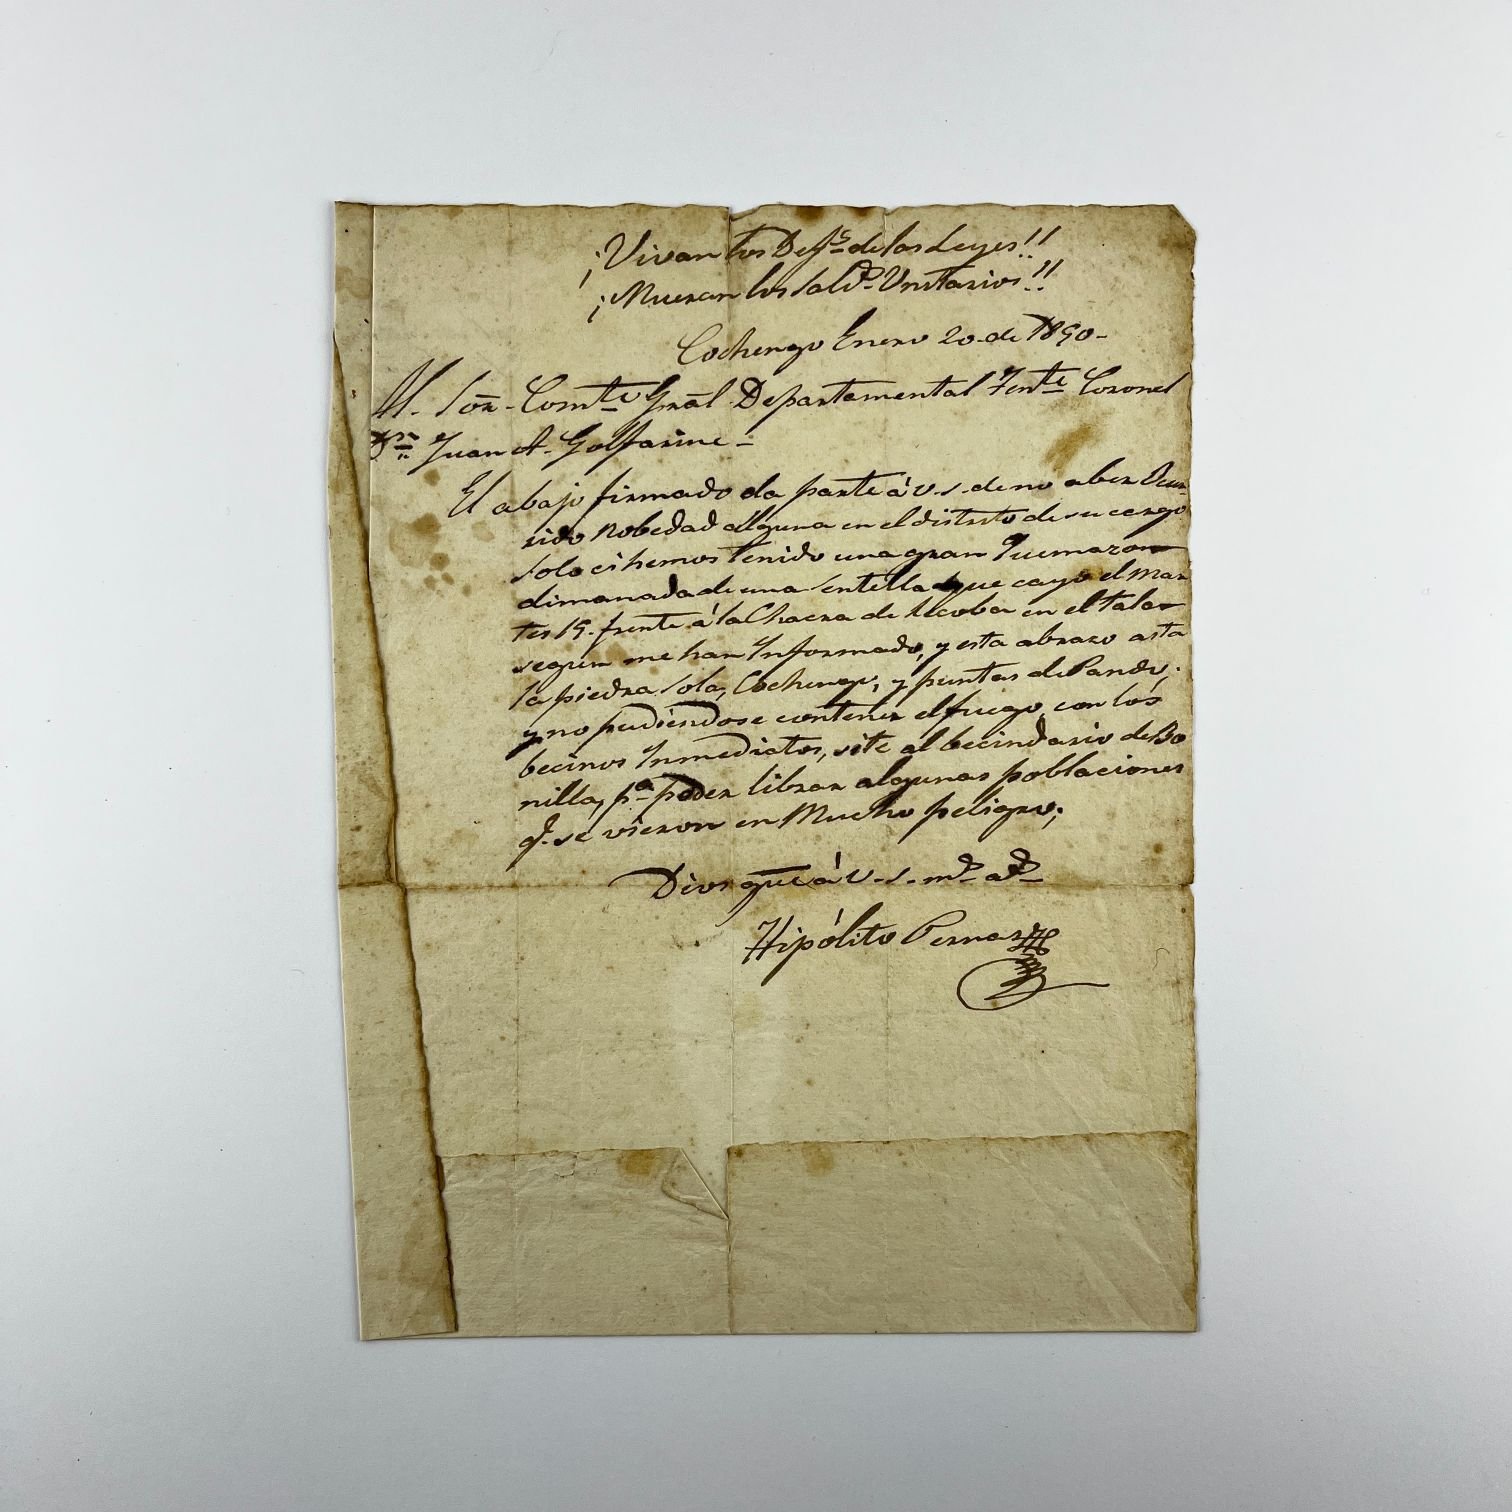 ¡Vivan los Defs. de las Leyes!!
¡Mueran los Salvs. Unitarios!!
Cochengo Enero 20. de 1850-
Al. Sor. Comte Gral. Departamental Tente Coronel
Dn. Juan A. Golfarine-
El abajo firmado da parte á v.s. de no aber Ocur-
rido Nobedad alguna en el distrito de su cargo
solo ci hemos tenido una gran Quemazon
dimanada de una sentella que cayo el mar
tes 15. frente á la Chacra de in el tala
segun me han Informado, y esta abrazo asta
la piedra sola, Cochengo, y puntas de Pando;
y no pudiendose contener el fuego con los
becinos Inmediatos, site al becindario de Bo
nilla, pa. poder librar algunas poblaciones
q. se vieron en Mucho peligro;
Dios gue. á V.S. ms. as.
Hipólito Pernas